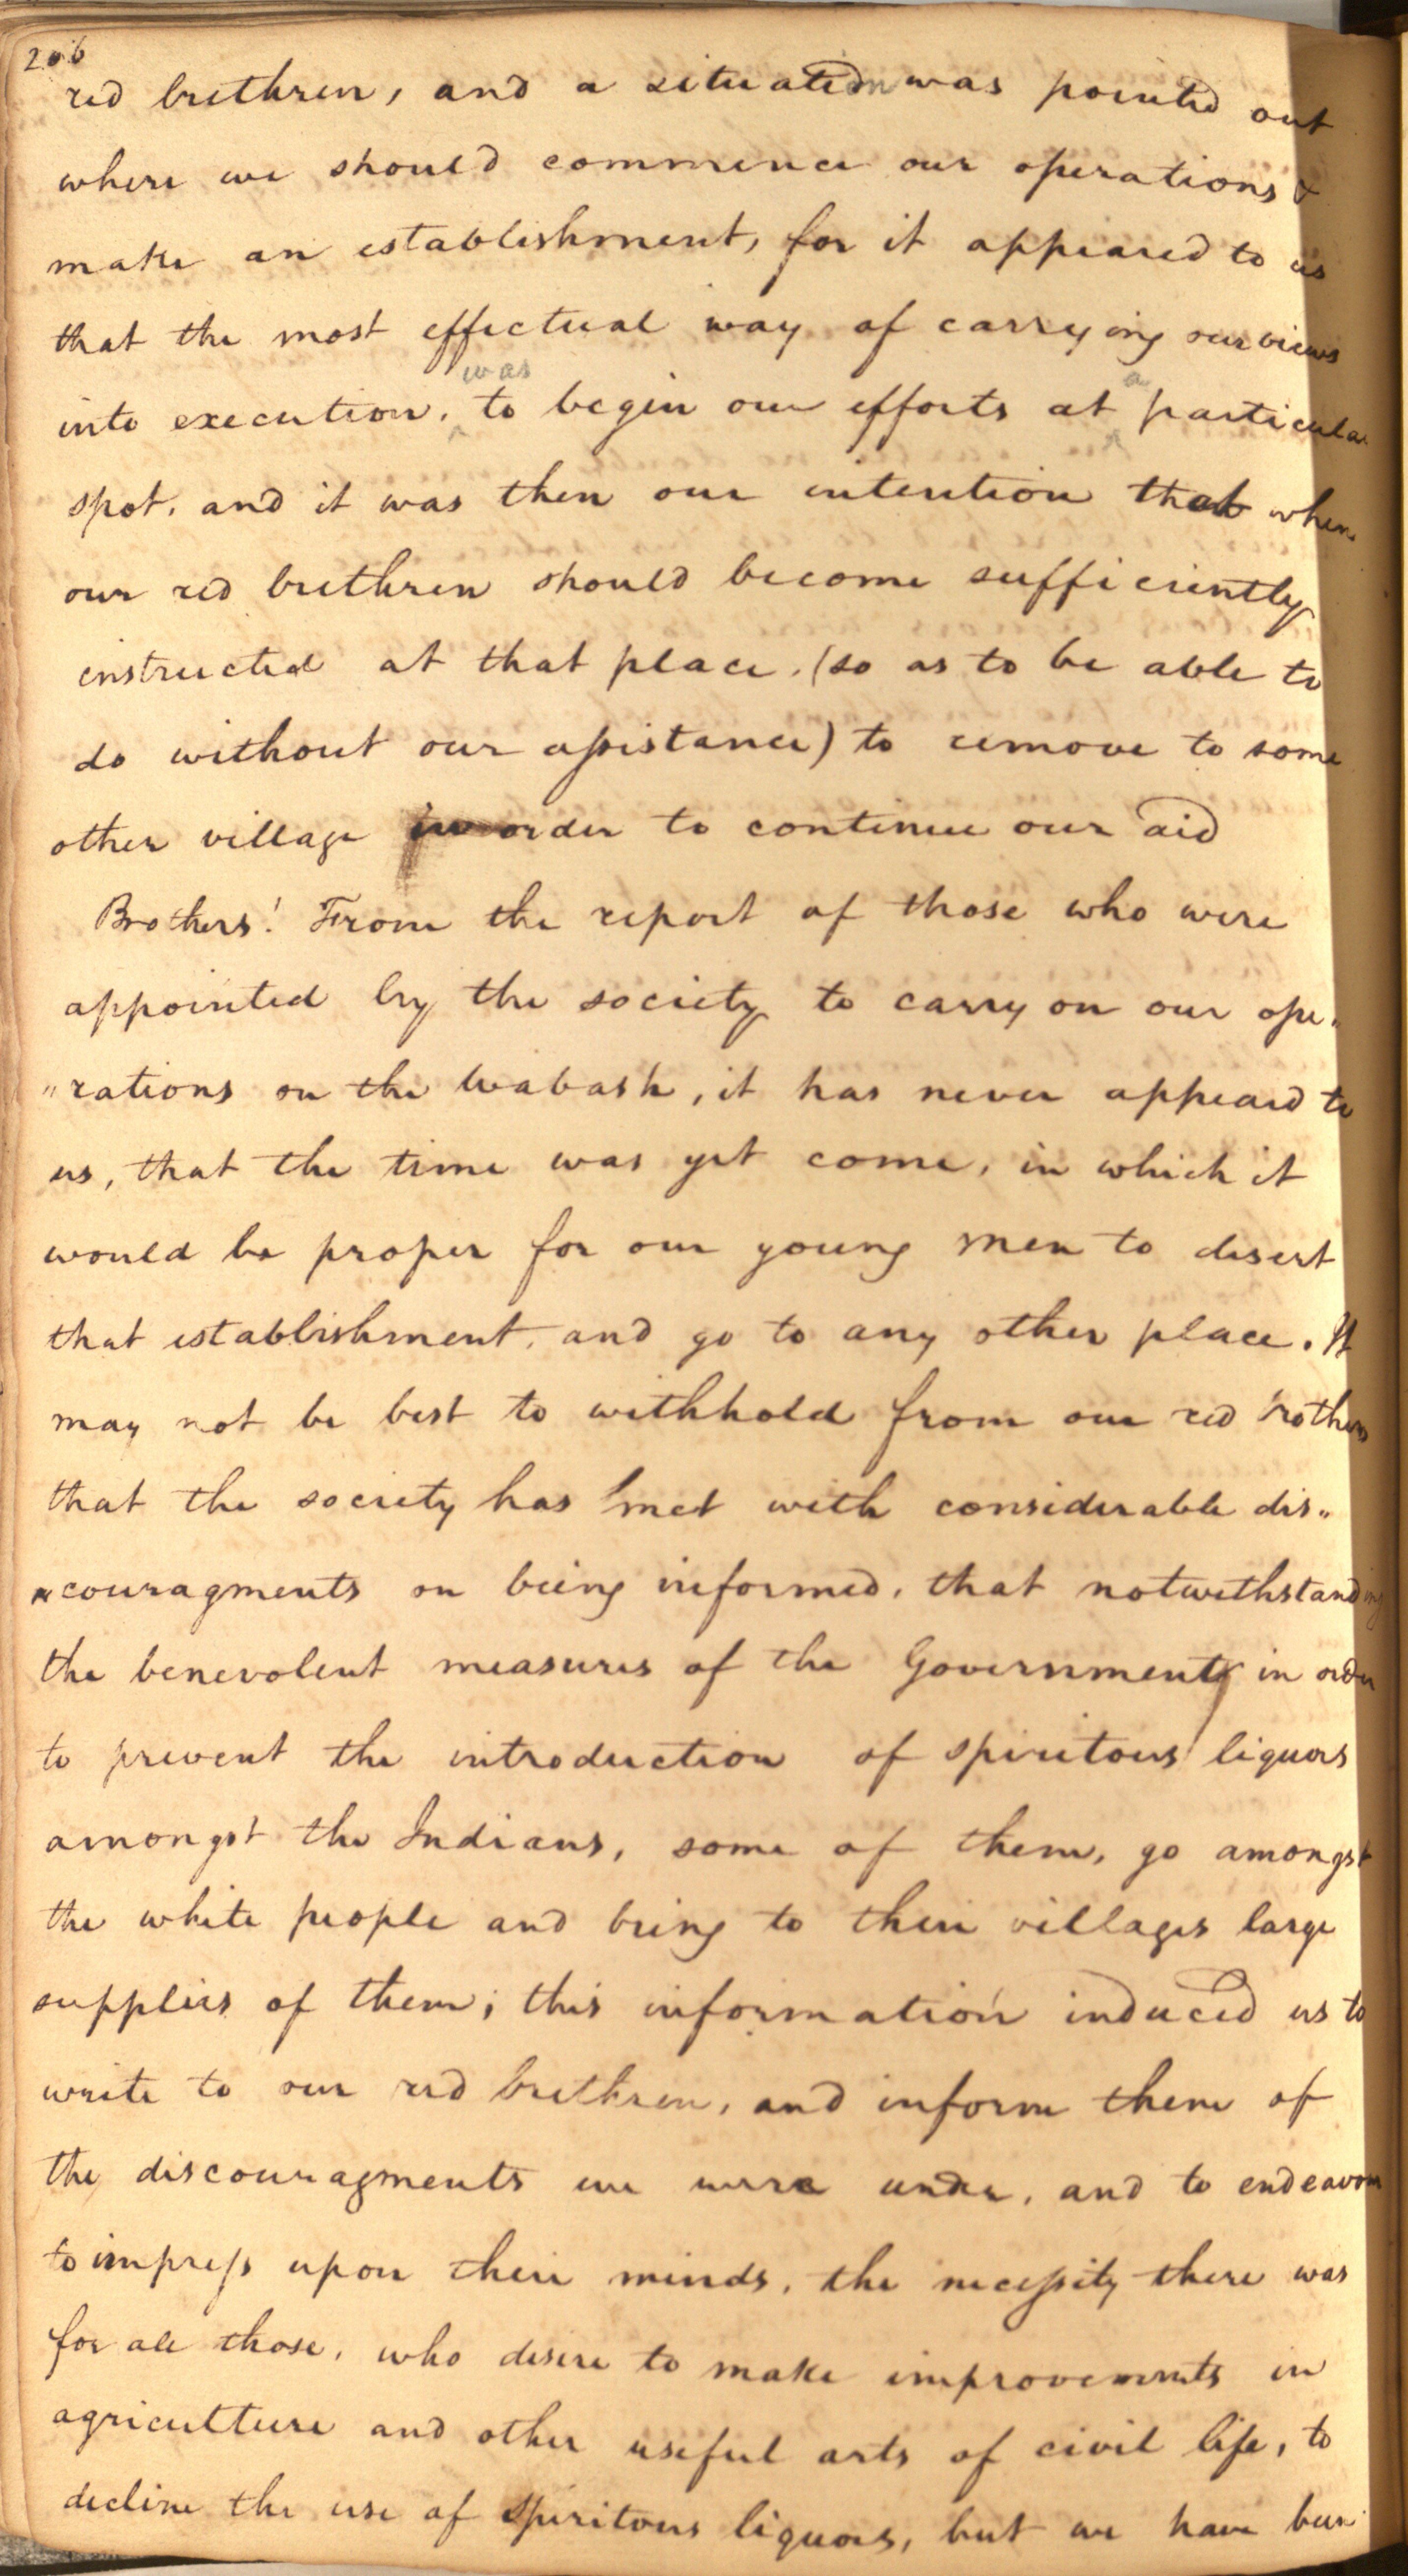 206
red brethren, and a situation was pointed out
where we should commence our operations &
make an establishment, for it appeared to us
that the most effectual way of carrying our views
was a
into execution, to begin our efforts at particular
spot, and it was then our intention that when
our red brethren should become sufficiently
instructed at that place, (so as to be able to
do without our assistance) to remove to some
other village in order to continue our aid
Brothers! From the report of those who were
appointed by the society to carry on our ope"
"rations on the Wabash, it has never appeard to
us, that the time was yet come, in which it
would be proper for our young men to desert
that establishment, and go to any other place. It
may not be best to withhold from our red brothers
that the society has met with considerable dis"
"couragments on being informed, that notwithstanding
the benevolent measures of the Government in order
to prevent the introduction of spiritous liquors
amongst the Indians, some of them, go amongst
the white people and bring to their villages large
supplies of them; this information induced us to
write to our red brethren, and inform them of
the discouragments we were under, and to endeavour
to impress upon their minds, the necessity there was
for all those, who desire to make improvements in
agriculture and other useful arts of civil life, to
decline the use of spiritous liquors, but we have been